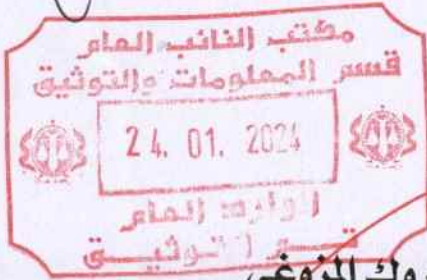 مكتب النائب العام
قسم المعلومات والتوثيق
24. 01. 2024
الوارد العام
قسم التوثيق
وك المزوغي